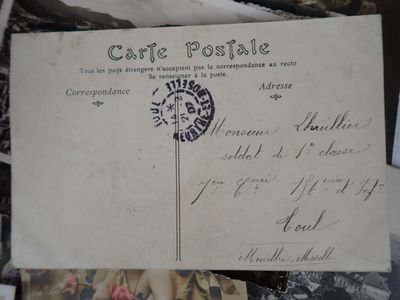 Carte Postale
Tous les pays étrangers n'acceptent pas la correspondance au recto
Se renseigner à la poste.
Correspondance
Adresse
TOUL
MEURTHE-ET-MOSELLE
Monsieur Lhuillier
soldat de 1re classe
156eme d'Infie
Toul
Meurthe-Moselle